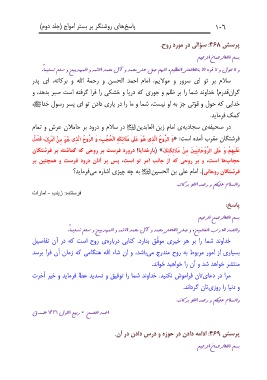 ۱۰۶ پاسخ‌های روشنگر بر بستر امواج (جلد دوم)
پرسش ۴۶۸: سؤالی در مورد روح.
بسم الله الرحمن الرحیم
سلام بر تو ای سرور و مولایم، امام احمد الحسن و رحمة الله و برکاته. ای پدر
گران‌قدرم! خداوند شما را بر ظلم و جوری که دریا و خشکی را فرا گرفته است صبر بدهد، و
خدایی که حول و قوّتی جز به او نیست، شما و ما را در یاری دادن تو ای پسر رسول خدا
کمک فرماید.
در صحیفه‌ی سجادیه‌ی امام زین العابدین در سلام و درود بر حاملان عرش و تمام
فرشتگان مقرب آمده است: «و الرّوحُ الّذی هُوَ عَلی مَلائِکَةِ الحُجُبِ، وَ الرّوحُ الّذی هُوَ مِنْ أمرِکَ، فَصَلِّ
عَلَیهِم وَ عَلَی الرّوحانِیّینَ مِنْ مَلائِکَتِکَ» (بارخدایا! درود فرست بر روحی که گماشته بر فرشتگان
حجاب‌ها است، و بر روحی که از جانب امر تو است، پس بر آنان درود فرست و همچنین بر
فرشتگان روحانی). امام علی بن الحسین به چه چیزی اشاره می‌فرماید؟
والسلام علیکم و رحمة الله و برکاته
فرستنده: زینب - امارات
پاسخ:
بسم الله الرحمن الرحیم
خداوند شما را بر هر خیری موفق بدارد. کتابی درباره‌ی روح است که در آن تفاصیل
بسیاری از امور مربوط به روح مندرج می‌باشد، و ان شاء الله هنگامی که زمان آن فرا برسد
منتشر خواهد شد و آن را خواهید خواند.
مرا در دعای‌تان فراموش نکنید. خداوند شما را توفیق و تسدید عطا فرماید و خیر آخرت
و دنیا را روزی‌تان گرداند.
والسلام علیکم و رحمة الله و برکاته
پرسش ۴۶۹: ادامه دادن در حوزه و درس دادن در آن.
بسم الله الرحمن الرحیم